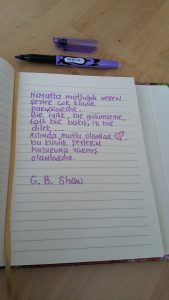 Hayatta mutluluk veren
şeyler çok küçük
parçalardır.
Bir iyilik, bir gülümseme,
tatlı bir bakış, iyi bir
dilek...
Aslında mutlu olanlar
bu küçük şeylerin
huzuruna varmış
olanlardır.
G. B. Shaw